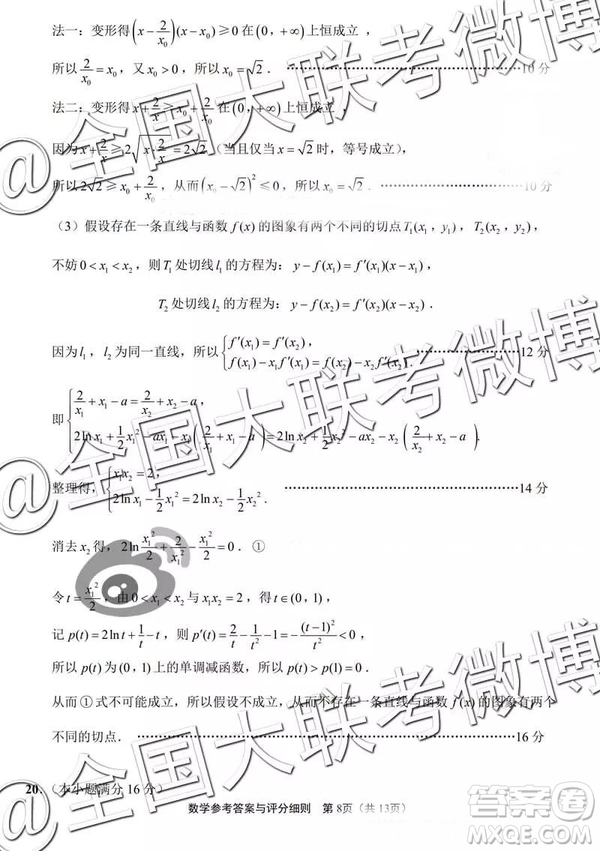 法一：变形得(x-2/x₀)(x-x₀)≥0在(0,+∞)上恒成立，
所以2/x₀=x₀，又x₀>0，所以x₀=√2． ………………10分
法二：变形得x+2/x≥x₀+2/x₀在(0,+∞)上恒成立
因为x+2/x≥2√(x·2/x)=2√2（当且仅当x=√2时，等号成立），
所以2√2≥x₀+2/x₀，从而(x₀-√2)²≤0，所以x₀=√2． ………………10分
（3）假设存在一条直线与函数f(x)的图象有两个不同的切点T₁(x₁，y₁)，T₂(x₂，y₂)，
不妨0<x₁<x₂，则T₁处切线l₁的方程为：y-f(x₁)=f′(x₁)(x-x₁)，
T₂处切线l₂的方程为：y-f(x₂)=f′(x₂)(x-x₂)．
因为l₁，l₂为同一直线，所以{f′(x₁)=f′(x₂)
f(x₁)-x₁f′(x₁)=f(x₂)-x₂f′(x₂). ………………12分
即{2/x₁+x₁-a=2/x₂+x₂-a,
2lnx₁+1/2x₁²-ax₁-x₁(2/x₁+x₁-a)=2lnx₂+1/2x₂²-ax₂-x₂(2/x₂+x₂-a).
整理得，
2lnx₁-1/2x₁²=2lnx₂-1/2x₂². ………………14分
消去x₂得，2ln x₁²/2+2/x₁²-x₁²/2=0．①
令t=x₁²/2，由0<x₁<x₂与x₁x₂=2，得t∈(0,1)，
记p(t)=2lnt+1/t-t，则p′(t)=2/t-1/t²-1=-(t-1)²/t²<0，
所以p(t)为(0,1)上的单调减函数，所以p(t)>p(1)=0．
从而①式不可能成立，所以假设不成立，从而不存在一条直线与函数f(x)的图象有两个
不同的切点． ………………16分
20.（本小题满分16分）
数学参考答案与评分细则 第8页（共13页）
@全国大联考微博
@全国大联考微博
@全国大联考微博
答案圈